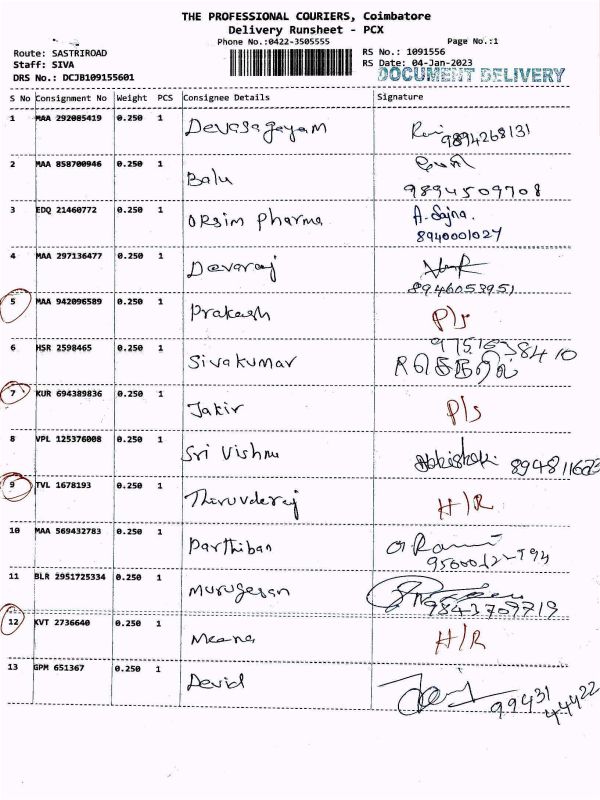 THE PROFESSIONAL COURIERS, Coimbatore
Delivery Runsheet - PCX
Phone No.:0422-3505555 Page No.:1
Route: SASTRIROAD RS No.: 1091556
Staff: SIVA RS Date: 04-Jan-2023
DRS No.: DCJB109155601 DOCUMENT DELIVERY
S No Consignment No Weight PCS Consignee Details Signature
1 MAA 292085419 0.250 1 Devasagayam 9894268131
2 MAA 858700946 0.250 1 Balu
9894509708
3 EDQ 21460772 0.250 1 Orsim Pharma A. Sajna.
8940001024
4 MAA 297136477 0.250 1 Devaraj
8946053951
5 MAA 942096589 0.250 1 Prakash P/s
6 HSR 2598465 0.250 1 Sivakumar 9751638410
7 KUR 694389836 0.250 1 Jakir P/s
8 VPL 125376008 0.250 1 Sri Vishnu Abhishek
9 TVL 1678193 0.250 1 H/R
10 MAA 569432783 0.250 1 Parthiban
11 BLR 2951725334 0.250 1 Murugesan
9843709719
12 KVT 2736640 0.250 1 Meena H/R
13 GPM 651367 0.250 1 Devid
99431
44422